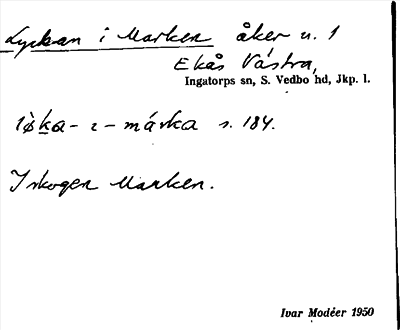 Lyckan i Marken åker u. 1
Ekås Västra,
Ingatorps sn, S. Vedbo hd, Jkp. l.
lø̀ka- ı - márka s. 184.
I skogen Marken.
Ivar Modéer 1950